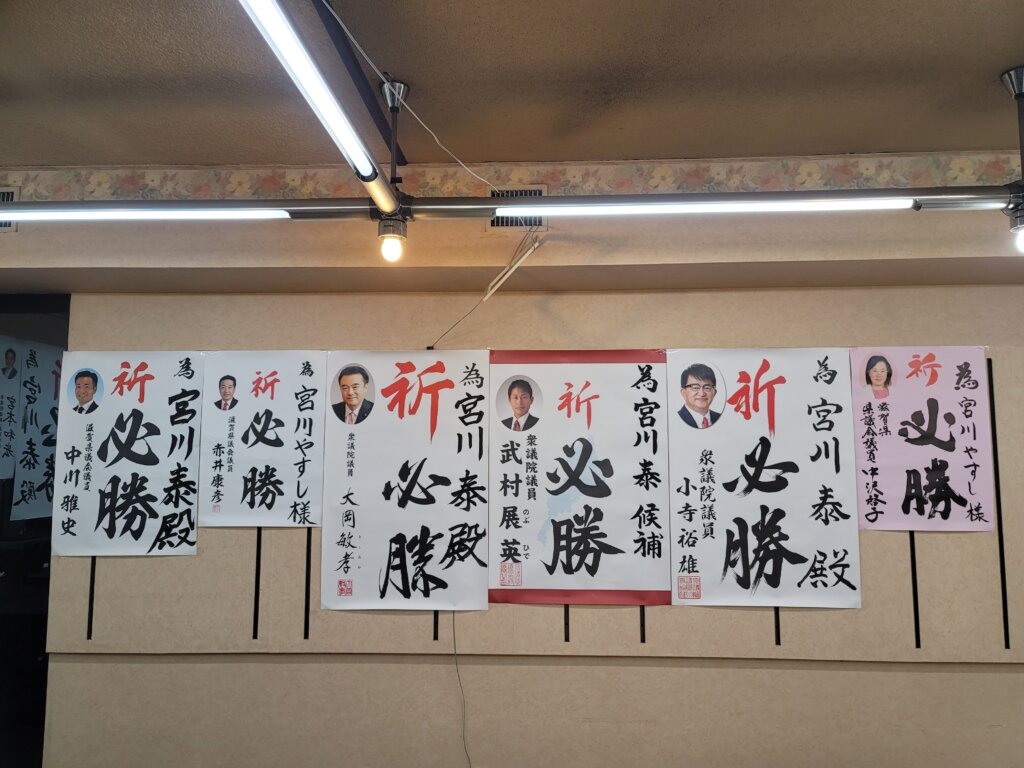 為宮川泰殿
祈必勝
為宮川泰殿
祈必勝
滋賀県議会議員
中川雅史
為宮川やすし様
祈必勝
滋賀県議会議員
赤井康彦
為宮川泰殿
祈必勝
衆議院議員
大岡敏孝
為宮川泰候補
祈必勝
衆議院議員
武村展英
のぶ ひで
為宮川泰殿
祈必勝
衆議院議員
小寺裕雄
為宮川やすし様
祈必勝
滋賀県
県議会議員 中沢啓子